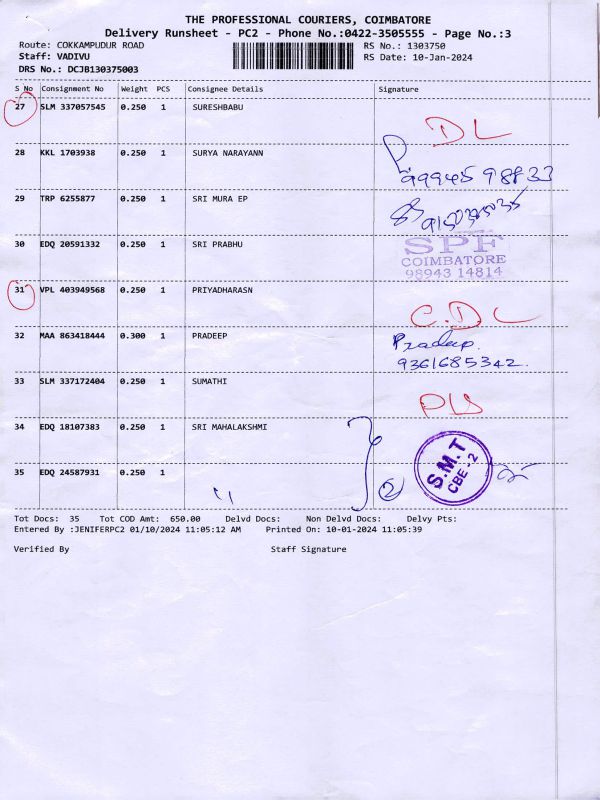 THE PROFESSIONAL COURIERS, COIMBATORE
Delivery Runsheet - PC2 - Phone No.:0422-3505555 - Page No.:3
Route: COKKAMPUDUR ROAD RS No.: 1303750
Staff: VADIVU RS Date: 10-Jan-2024
DRS No.: DCJB130375003
S No Consignment No Weight PCS Consignee Details Signature
27 SLM 337057545 0.250 1 SURESHBABU
DL
28 KKL 1703938 0.250 1 SURYA NARAYANN
99945 98833
29 TRP 6255877 0.250 1 SRI MURA EP
30 EDQ 20591332 0.250 1 SRI PRABHU
SPF
COIMBATORE
98943 14814
31 VPL 403949568 0.250 1 PRIYADHARASN
C.DL
32 MAA 863418444 0.300 1 PRADEEP
Pradeep.
9361685342.
33 SLM 337172404 0.250 1 SUMATHI
DLS
34 EDQ 18107383 0.250 1 SRI MAHALAKSHMI
35 EDQ 24587931 0.250 1
2
S.M.T
CBE-2
Tot Docs: 35 Tot COD Amt: 650.00 Delvd Docs: Non Delvd Docs: Delvy Pts:
Entered By :JENIFERPC2 01/10/2024 11:05:12 AM Printed On: 10-01-2024 11:05:39
Verified By Staff Signature